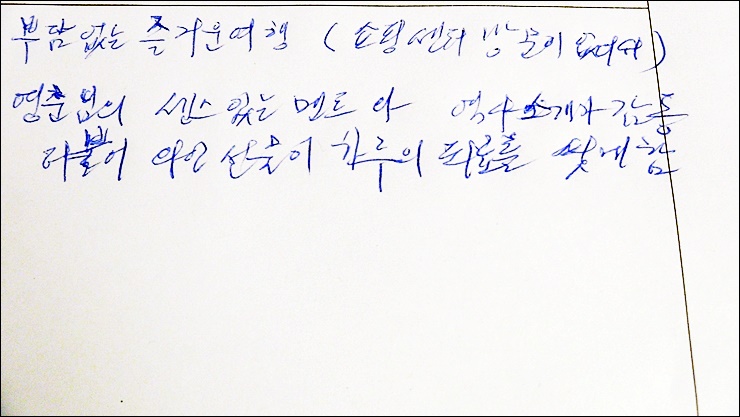 부담없는 즐거운여행 (쇼핑센터 방문이 없어서)
영춘님의 센스있는 멘트와 역사소개가 감동
더불어 와인 선물이 하루의 피로를 씻게함